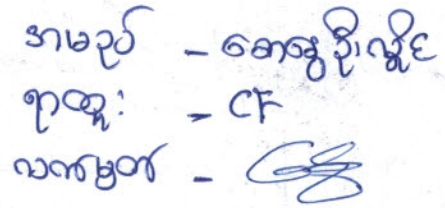 အမည် - စောရွှေဦးလှိုင်
ရာထူး - CF
လက်မှတ် -